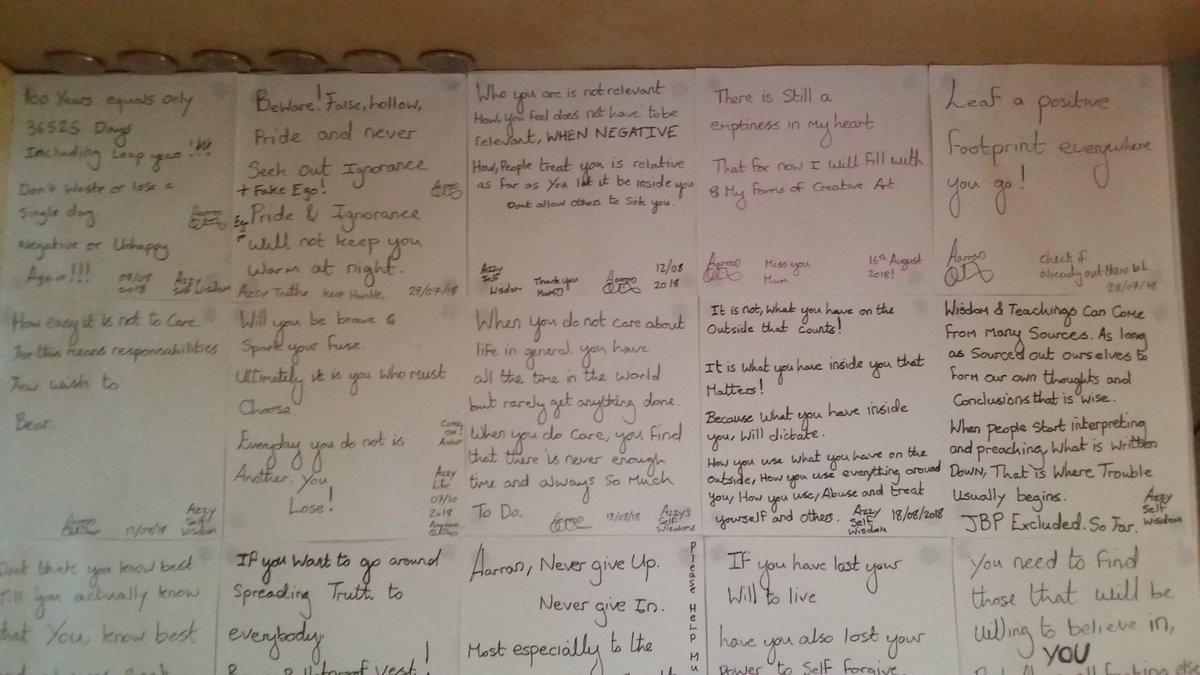 100 Years equals only
36525 Days
Including Leap years !!!
Don't Waste or lose a
Single day
Negative or Unhappy
Again!!!
09/08
2018
Azzy
Self Wisdom
Beware! False, hollow,
Pride and never
Seek out Ignorance
+ Fake Ego!
Pride & Ignorance
Will not keep you
Warm at night.
Azzy Truths keep Humble. 29/07/18
Who you are is not relevant
How, you feel does not have to be
relevant, WHEN NEGATIVE
How, People treat you is relative
as far as You let it be inside you
Dont allow others to Sink you.
Azzy
Self
Wisdom
Thank you
Mum
Aarran
12/08
2018
There is Still a
emptiness in my heart
That for now I will fill with
My forms of Creative Art.
Aarran
Miss you
Mum
16th August
2018!
Leaf a positive
Footprint everywhere
you go!
Aarran
check if
already out there lol
29/07/18
How easy it is not to Care.
For this means responsabilities
Few wish to
Bear.
Aarran
12/08/18
Azzy
Self
Wisdom
Will you be brave &
Spark your fuse.
Ultimately it is you who must
Choose.
Everyday you do not is
Another. You
Lose!
Come
on!
Aarran
Azzy
Life
07/10
2018
Aarran
When you do not care about
life in general. you have
all the time in the world
but rarely get anything done.
When you do care, you find
that there is never enough
time and always so much
To Do.
Aarran
12/08/18
Azzy's
Self
Wisdoms
It is not, What you have on the
Outside that Counts!
It is what you have inside you that
Matters!
Because what you have inside
you, Will dictate.
How you use what you have on the
outside, How you use everything around
you, How you use, Abuse and treat
yourself and others.
Azzy
Self
Wisdom
18/08/2018
Wisdom & Teachings Can Come
From Many Sources. As long
as Sourced out ourselves to
form our own thoughts and
Conclusions that is wise.
When people Start interpreting
and preaching, What is Written
Down, That is Where Trouble
Usually begins.
JBP Excluded. So Far.
Azzy
Self
Wisdom
Dont think you know best
Till you actually know
that You, know best
If you Want to go around
Spreading Truth to
everybody,
Aarran, Never give Up.
Never give In.
Most especially to the
Please Help Mu
If you have lost your
Will to live
have you also lost your
Power to Self forgive
You need to Find
those that will be
willing to believe in,
YOU